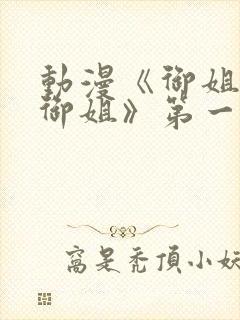 動漫《御姐
御姐》第一
窩是禿頂小妖